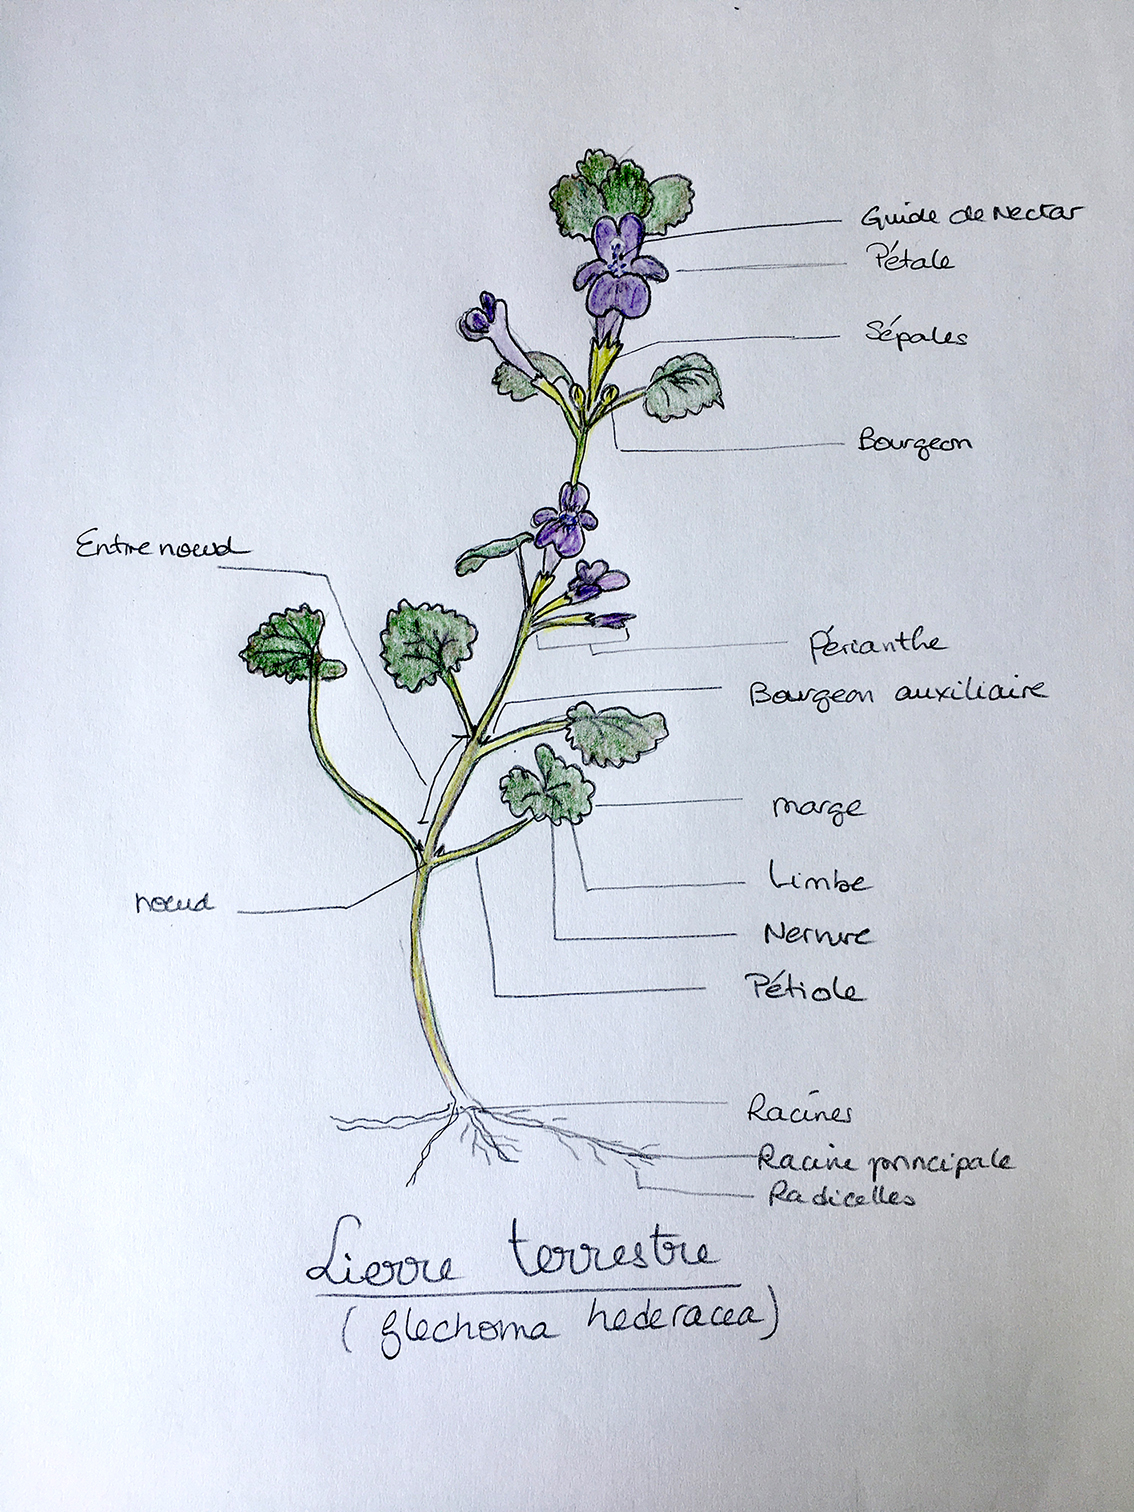 Guide de Nectar
Pétale
Sépales
Bourgeon
Entre noeud
Périanthe
Bourgeon auxiliaire
marge
Limbe
noeud
Nervure
Pétiole
Racines
Racine principale
Radicelles
Lierre terrestre
(glechoma hederacea)